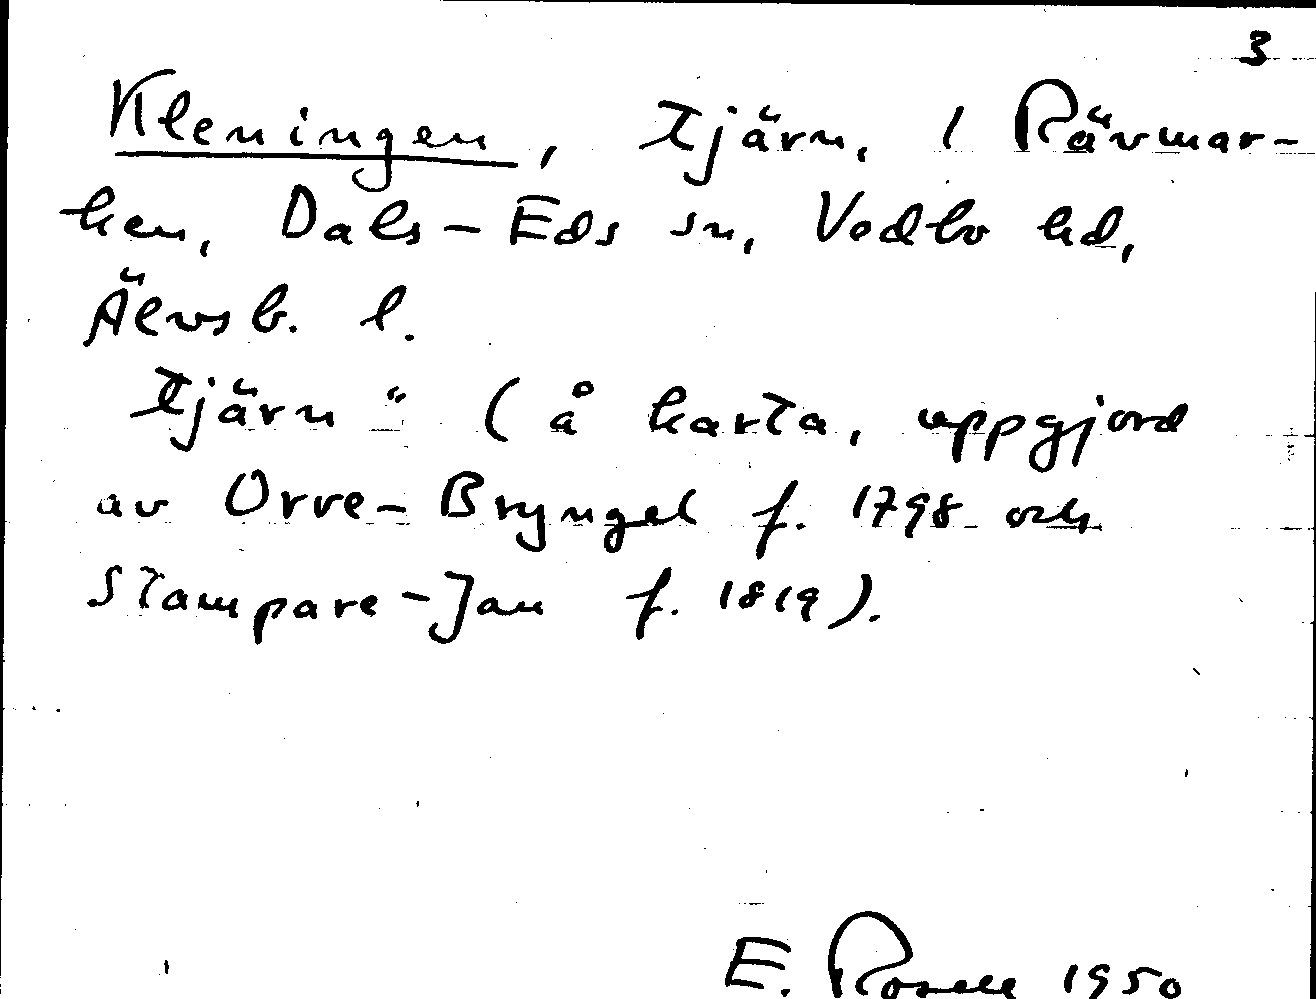 3
Kleningen, tjärn, 1 Rävmar-
ken, Dals-Eds sn, Vedbo hd,
Älvsb. l.
tjärn " (å karta, uppgjord
av Orre-Bryngel f. 1798 och
Stampare-Jan f. 1819).
E. Rosell 1950